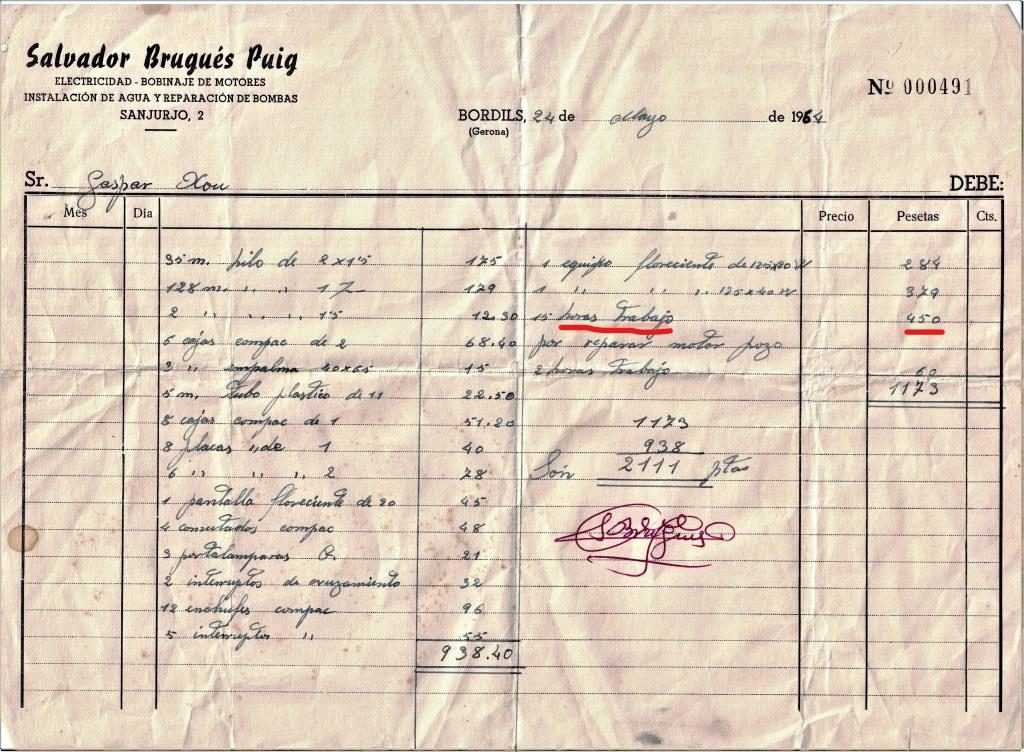 Salvador Brugués Puig
ELECTRICIDAD - BOBINAJE DE MOTORES
INSTALACIÓN DE AGUA Y REPARACIÓN DE BOMBAS
SANJURJO, 2
Nº 000491
BORDILS, 24 de Mayo de 1964
(Gerona)
Sr. Gaspar Xou
DEBE:
Mes Día Precio Pesetas Cts.
35 m. hilo de 2 x 1'5 175
128 m. ,, ,, 1 179
2 ,, ,, 1'5 12.30
6 cajas compac de 2 68.40
2 ,, empalma 40x65 15
5 m. tubo plastico de 11 22.50
8 cajas compac de 1 51.20
8 placas ,, de 1 40
6 ,, ,, ,, 2 78
1 pantalla floreciente de 20 45
4 conmutados compac 48
3 portalamparas 21
2 interruptos de cruzamiento 32
12 enchufes compac 96
5 interruptos ,, 55
938.40
1 equipo floreciente de 125x20 W 284
1 ,, ,, ,, 125x40 W 379
15 horas Trabajo 450
por reparar motor pozo
2 horas Trabajo 60
1173
1173
938
Són 2111 ptas